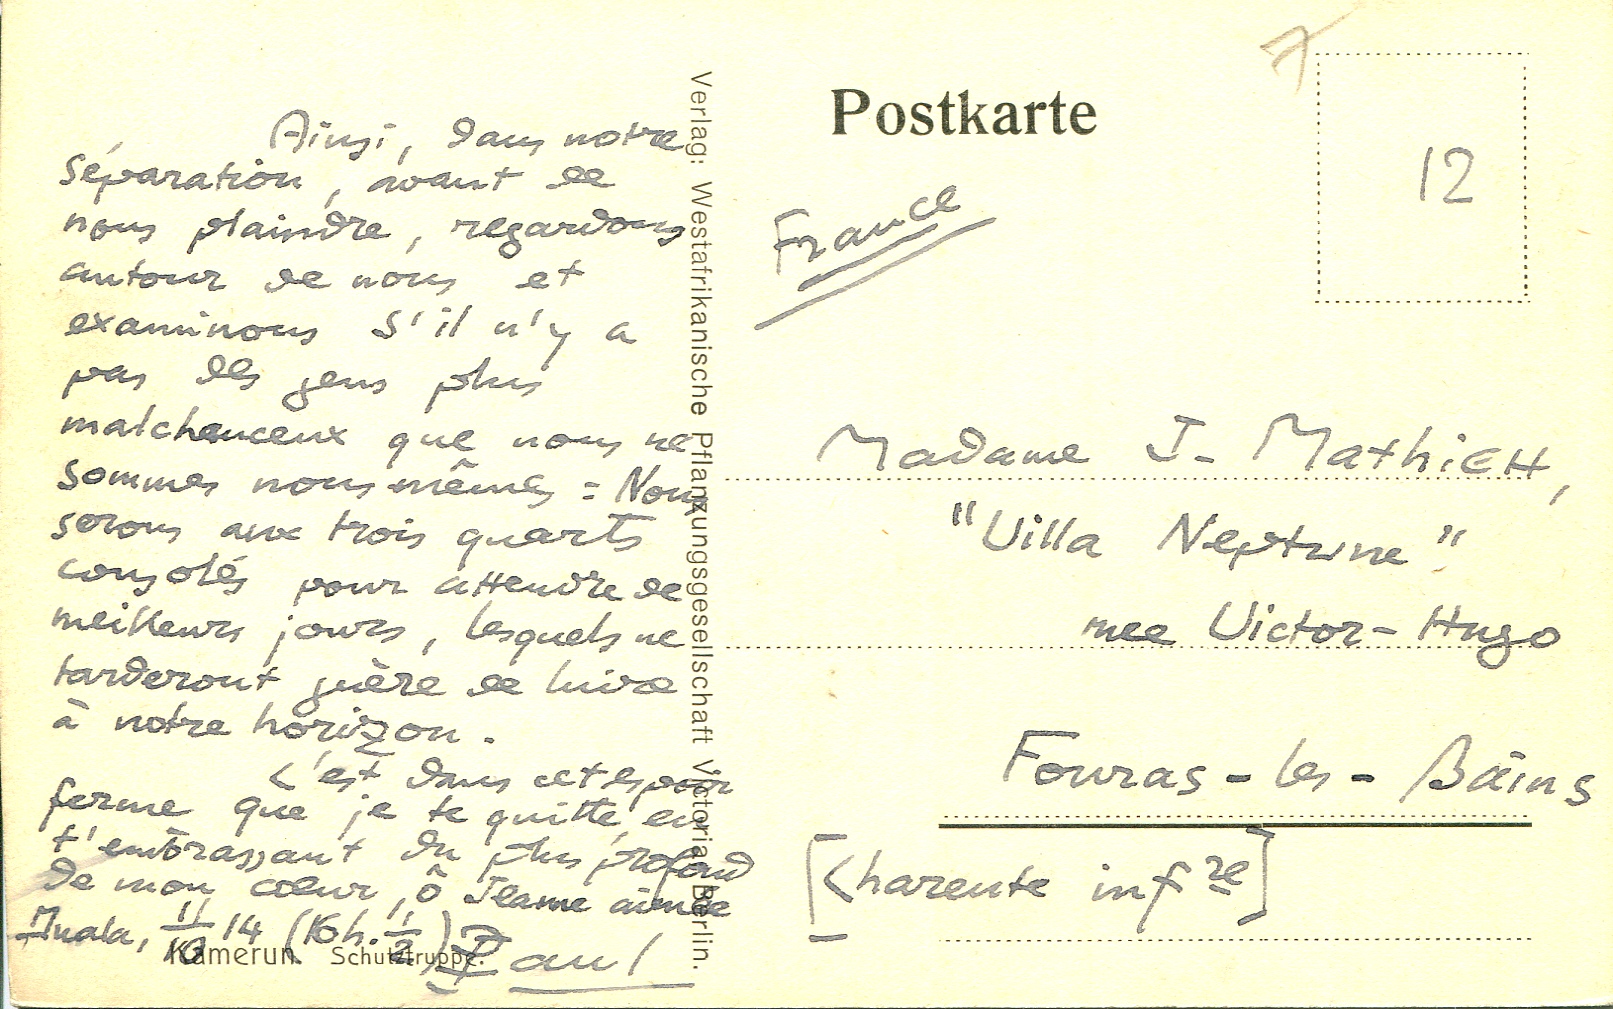 Ainsi, dans notre
séparation, avant de
nous plaindre, regardons
autour de nous et
examinons s'il n'y a
pas des gens plus
malchanceux que nous ne
sommes nous mêmes = Nous
serons aux trois quarts
consolés pour attendre de
meilleurs jours, lesquels ne
tarderont guère de luire
à notre horizon.
C'est dans cet espoir
ferme que je te quitte en
t'embrassant du plus profond
de mon cœur, ô Jeanne aimée
11/10 14 (16 h. 1/2) Paul
Kamerun. Schutztruppe.
Verlag: Westafrikanische Pflanzungsgesellschaft Victoria, Berlin.
Postkarte
7
12
France
Madame J- Mathieu,
"Villa Neptune".
rue Victor-Hugo
Fouras-les-Bains
[Charente infre]